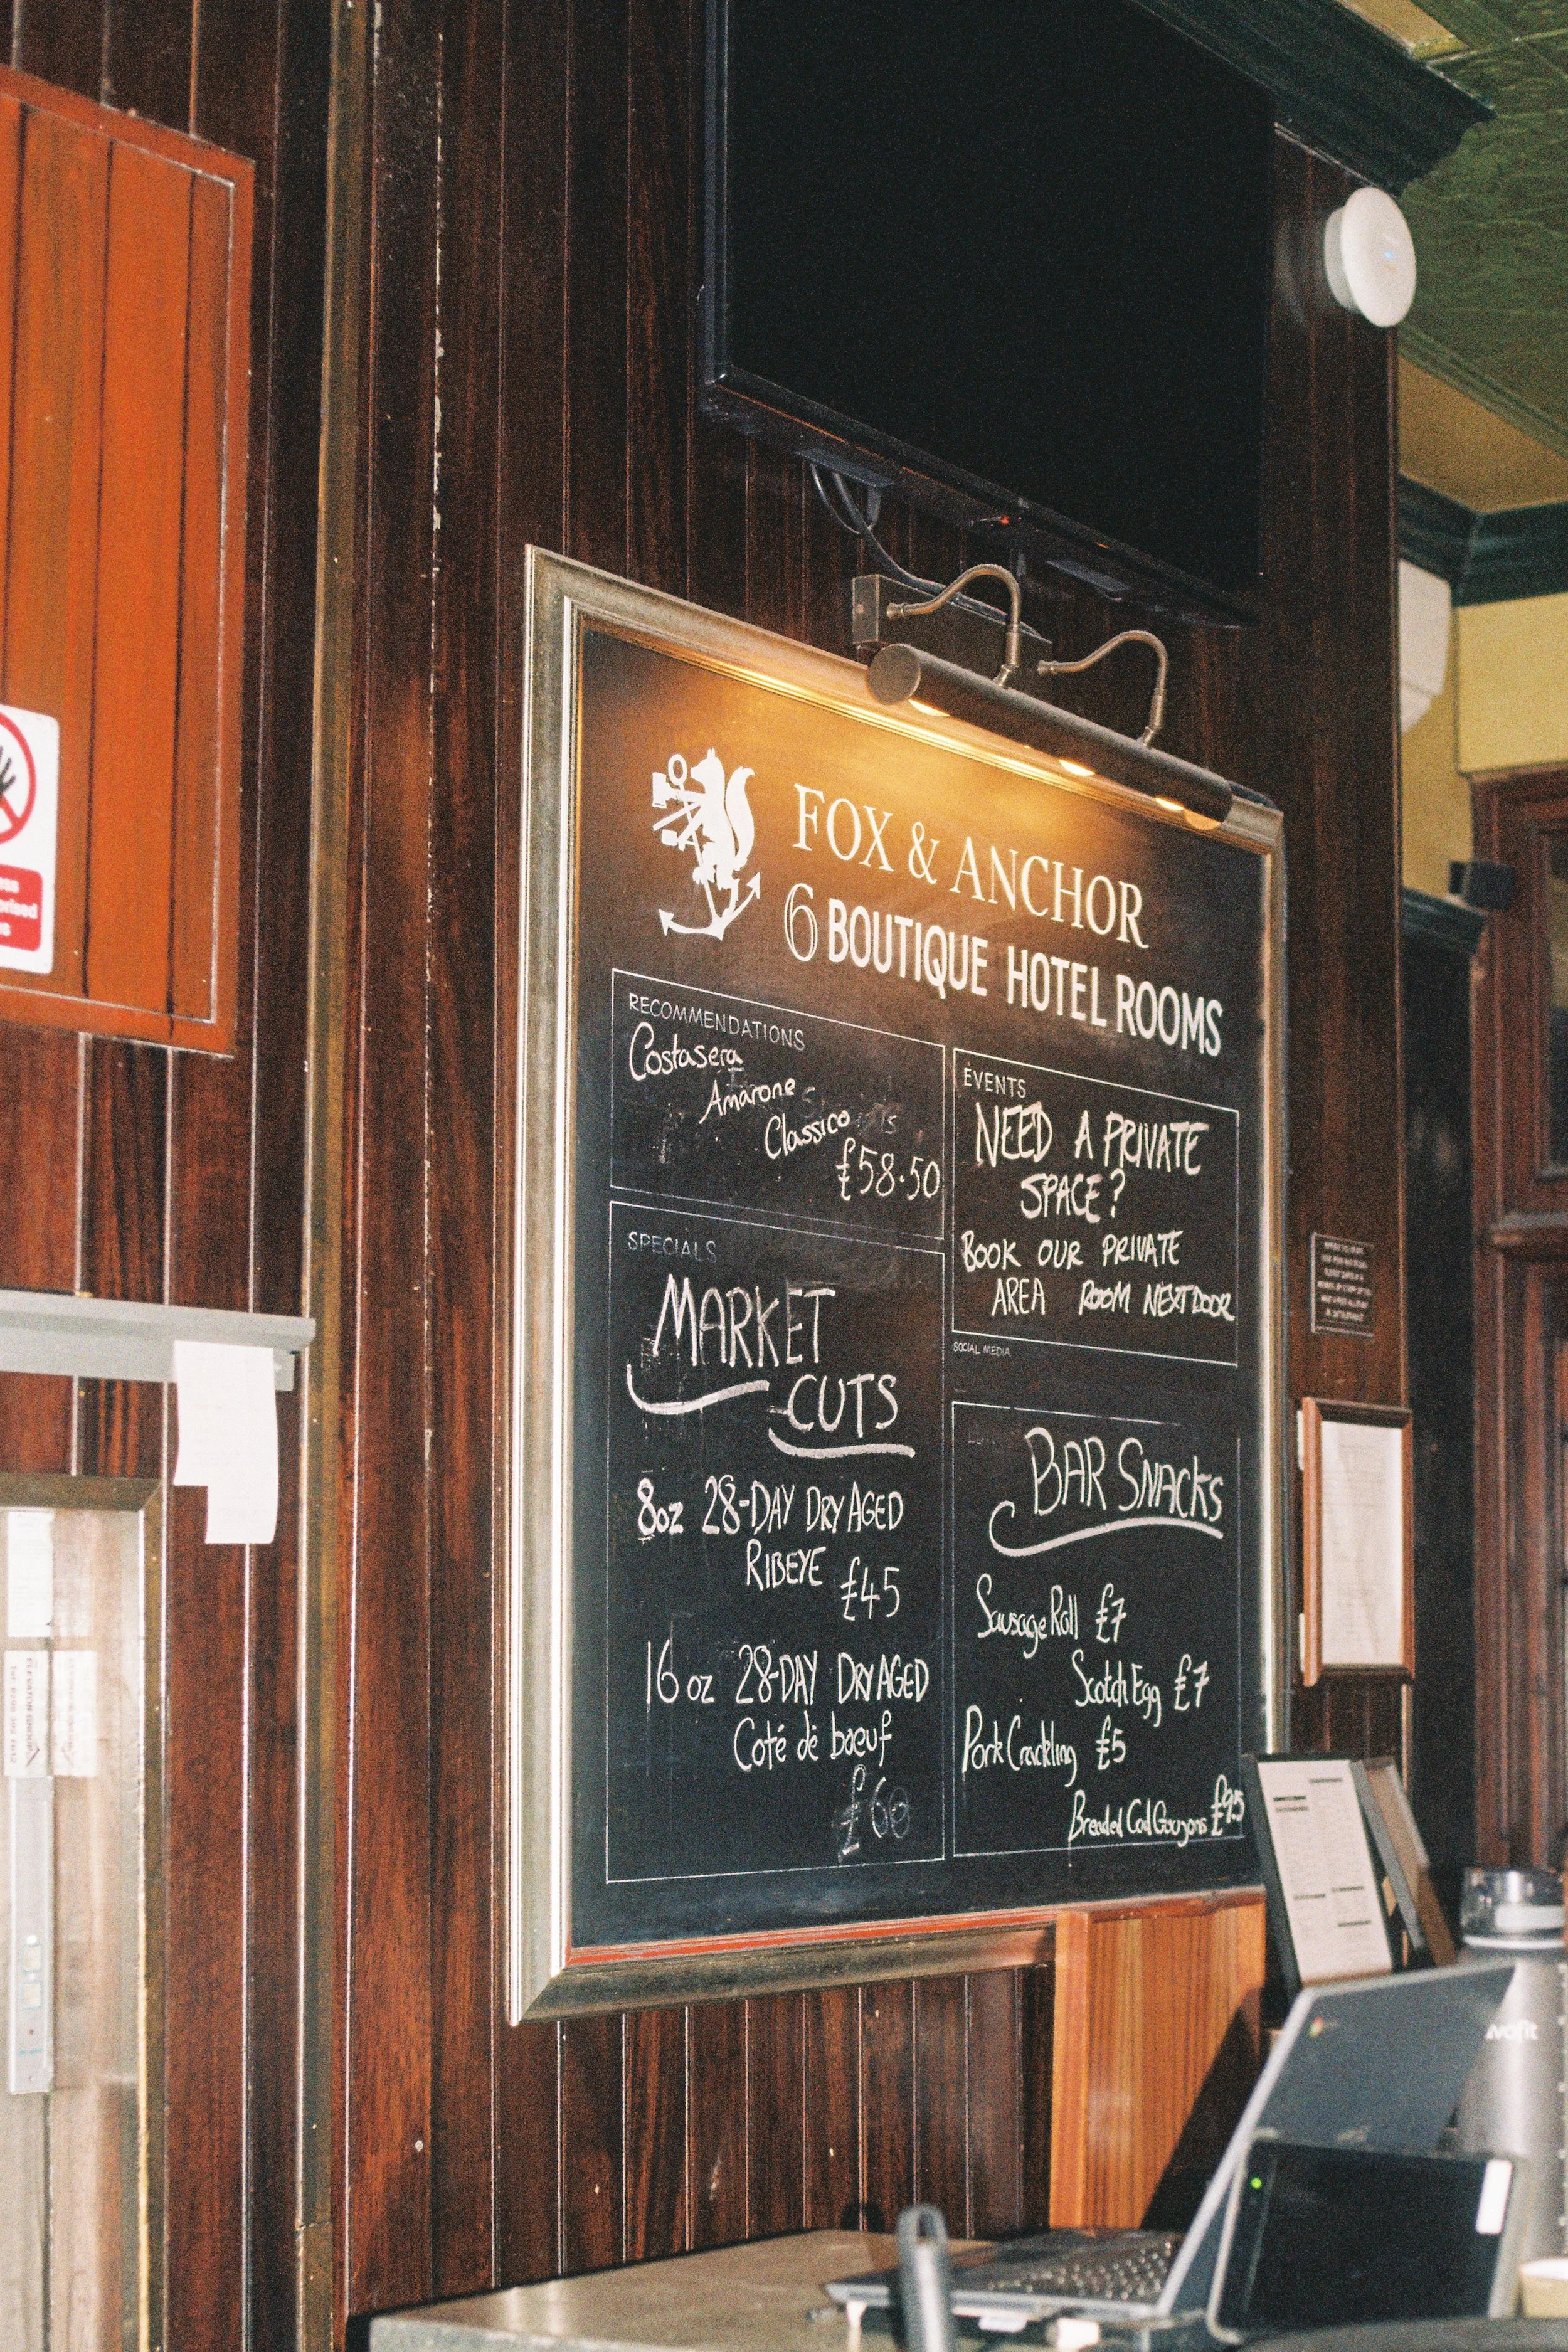 FOX & ANCHOR
6 BOUTIQUE HOTEL ROOMS
RECOMMENDATIONS
Costasera
Amarone
Classico
£58.50
SPECIALS
MARKET
CUTS
8oz 28-DAY DRY AGED
RIBEYE £45
16 oz 28-DAY DRY AGED
Coté dē boeuf
£60
EVENTS
NEED A PRIVATE
SPACE?
BOOK OUR PRIVATE
AREA ROOM NEXT DOOR
SOCIAL MEDIA
BAR SNACKS
Sausage Roll £7
Scotch Egg £7
Pork Crackling £5
Breaded Cod Goujons £9.5